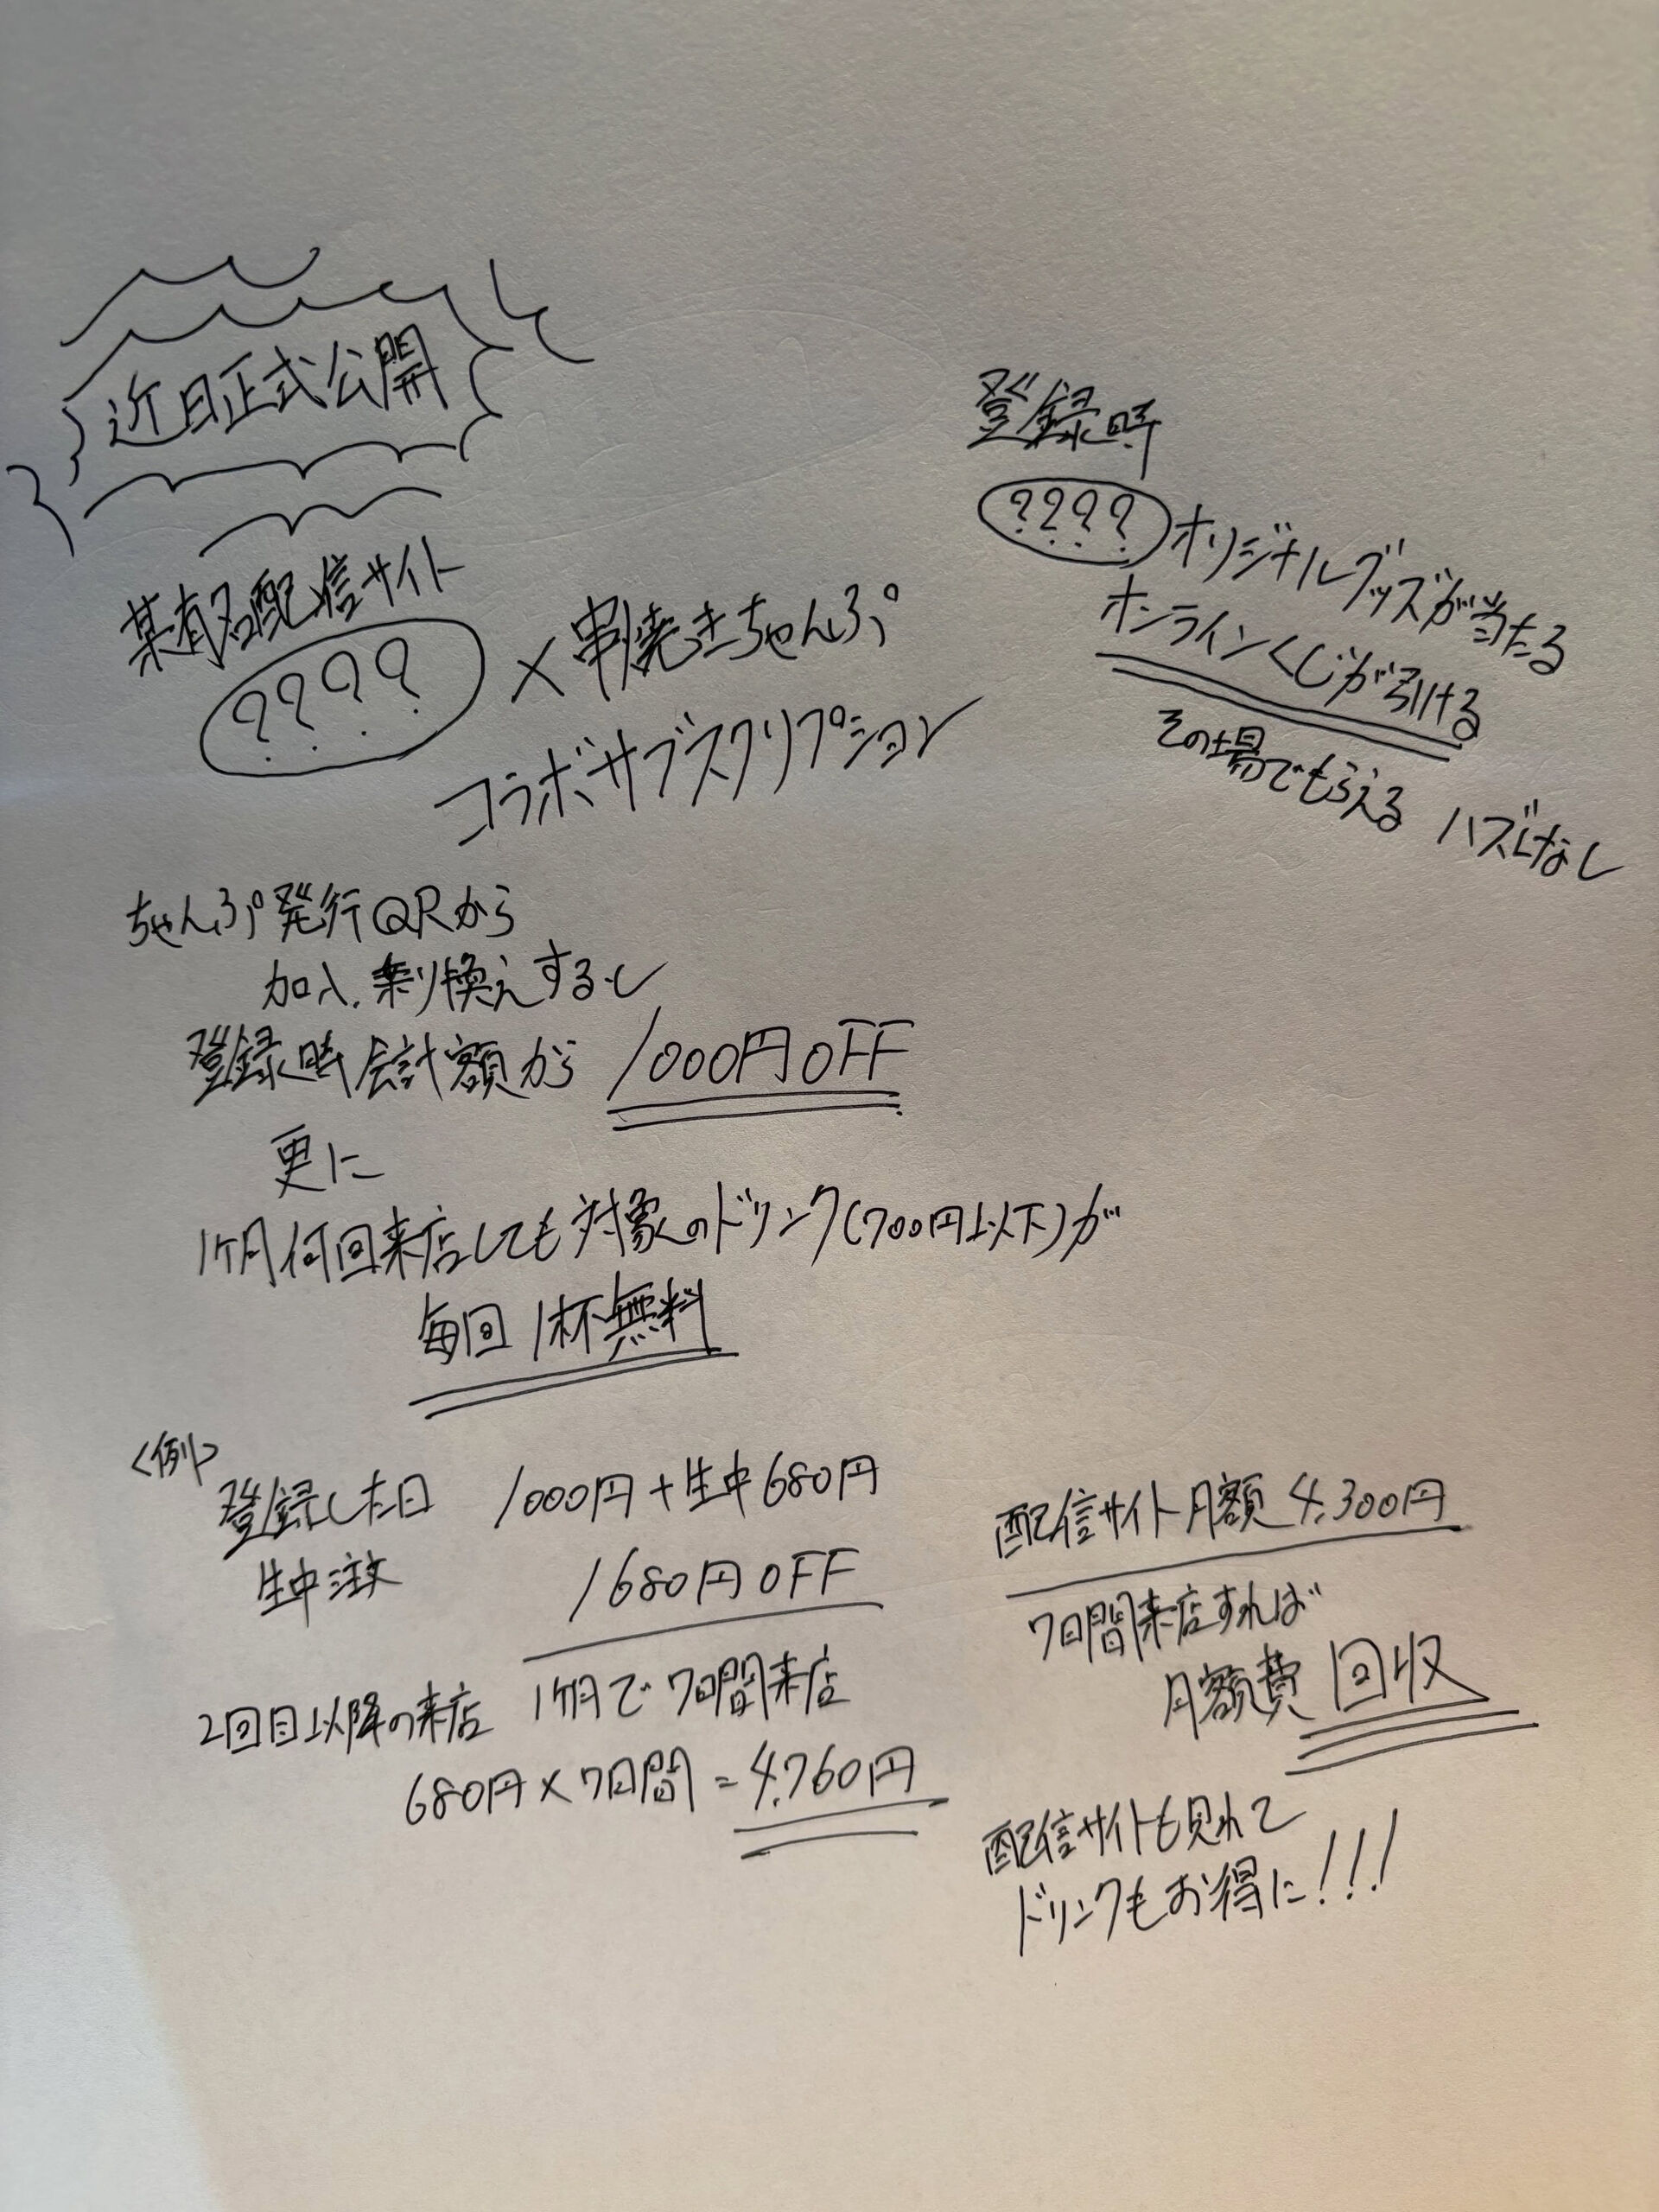 近日正式公開
某有名配信サイト
????
×串焼きちゃんぷ
コラボサブスクリプション
登録時
????オリジナルグッズが当たる
オンラインくじが引ける
その場でもらえる ハズレなし
ちゃんぷ発行QRから
加入.乗り換えすると
登録時会計額から 1000円OFF
更に
1ヶ月何回来店しても対象のドリンク(700円以下)が
毎回1杯無料
<例>
登録した日 1000円+生中680円
生中注文 1680円OFF
2回目以降の来店 1ヶ月で7日間来店
680円×7日間=4.760円
配信サイト月額4.300円
7日間来店すれば
月額費回収
配信サイトも見れて
ドリンクもお得に!!!